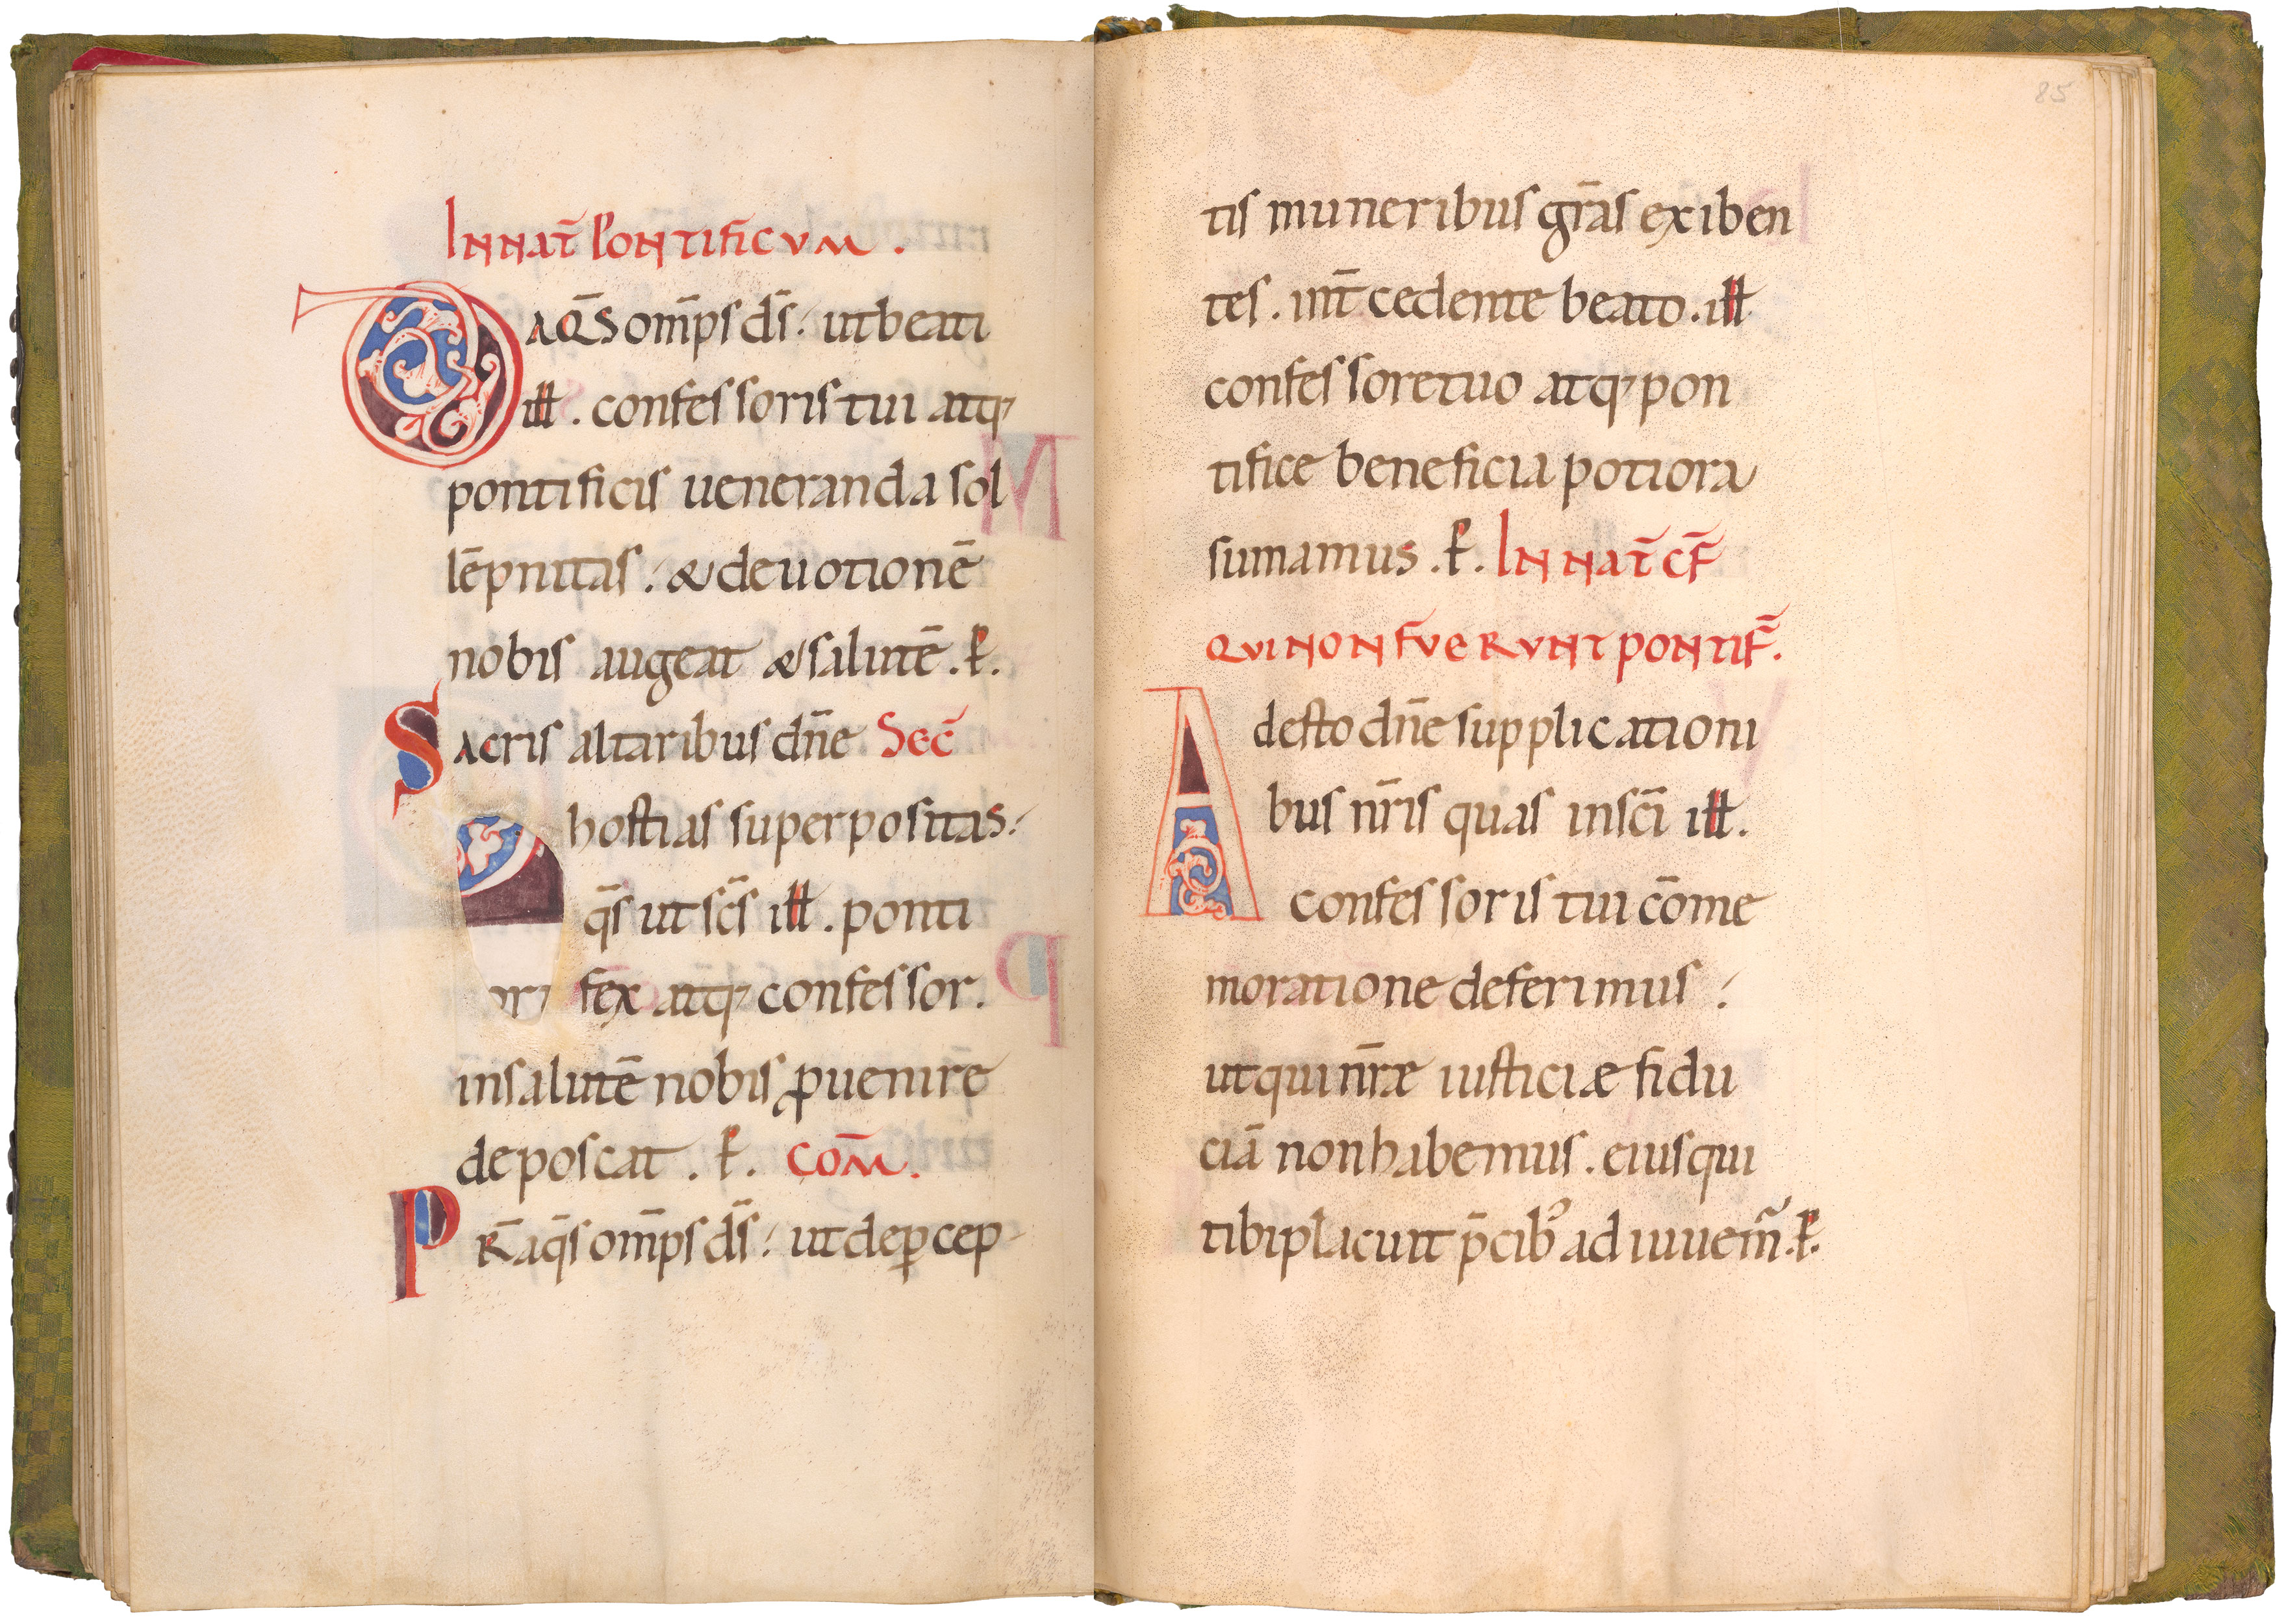 In nat̄ Pontificum .
DA Q̄S om̄ps ds̄ ut beati
ill . confessoris tui atq;
pontificis ueneranda sol
lēpnitas & deuotionē
nobis augeat & salutē . P̶.
Sacris altaribus dn̄e Sec̄
hostias superpositas
q̄s ut sc̄s ill . ponti
fex atq; confessor .
in salutē nobis ꝓuenire
deposcat . P̶. Com̄ .
PR̄ aq̄s om̄ps ds̄ ut de ꝑcep
85
tis muneribus grās exiben
tes . int̄cedente beato . ill
confessore tuo atq; pon
tifice beneficia potiora
sumamus . P̶. In nat̄ cf̄
qui non fuerunt pontif̄ .
Adesto dn̄e supplicationi
bus nr̄is quas in sc̄i ill .
confessoris tui cōme
moratione deferimus
ut qui nr̄æ iusticiæ fidu
ciā non habemus . eius qui
tibi placuit p̄cib᾽ adiuuem̃ . P̶.